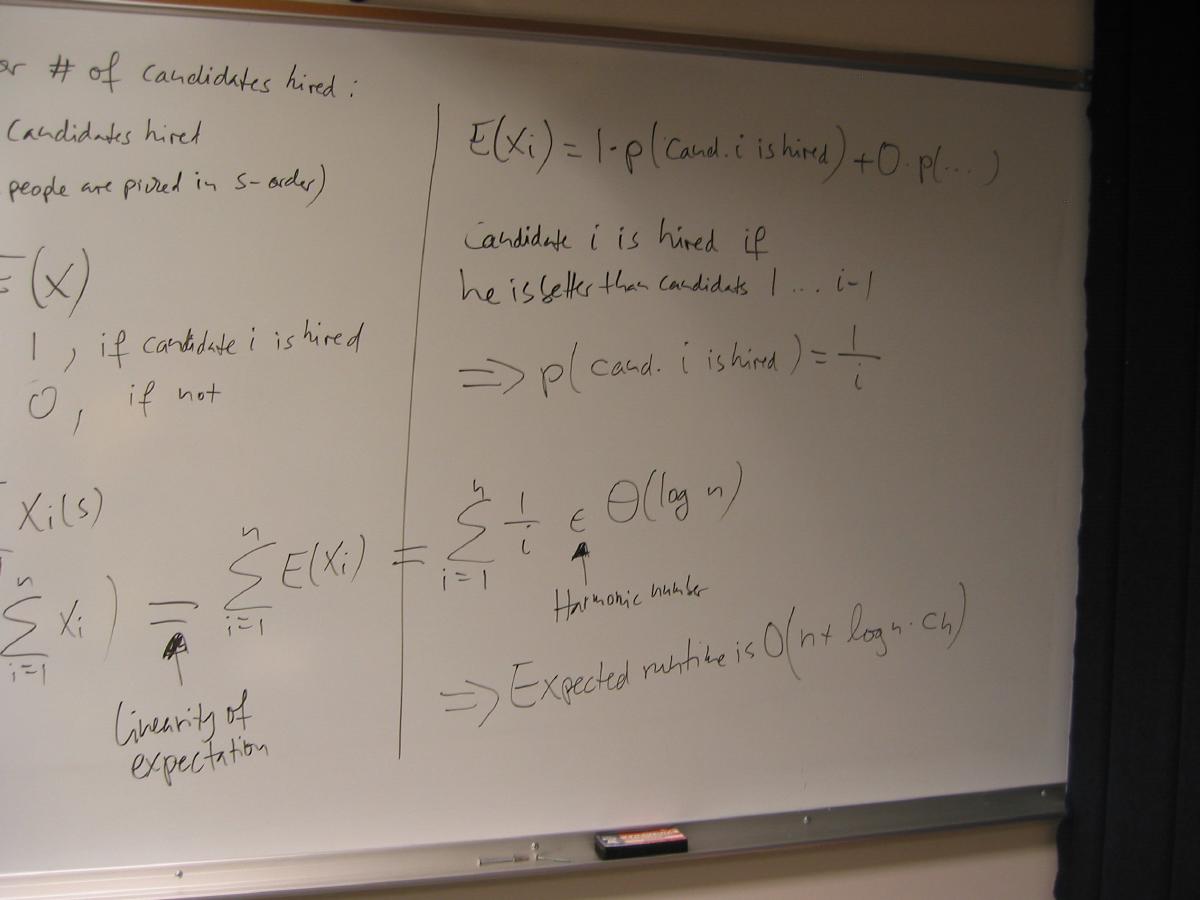 # of candidates hired:
Candidates hired
people are picked in s-order)
= (X)
1, if candidate i is hired
0, if not
Xi(s)
n
∑ Xi) = ∑ E(Xi) = ∑ 1/i ∈ Θ(log n)
i=1
Linearity of
expectation
E(Xi) = 1·p(cand. i is hired) + 0·p(...)
Candidate i is hired if
he is better than candidats 1 ... i-1
=> p(cand. i is hired) = 1/i
Harmonic number
=> Expected runtime is O(n + log n · ch)